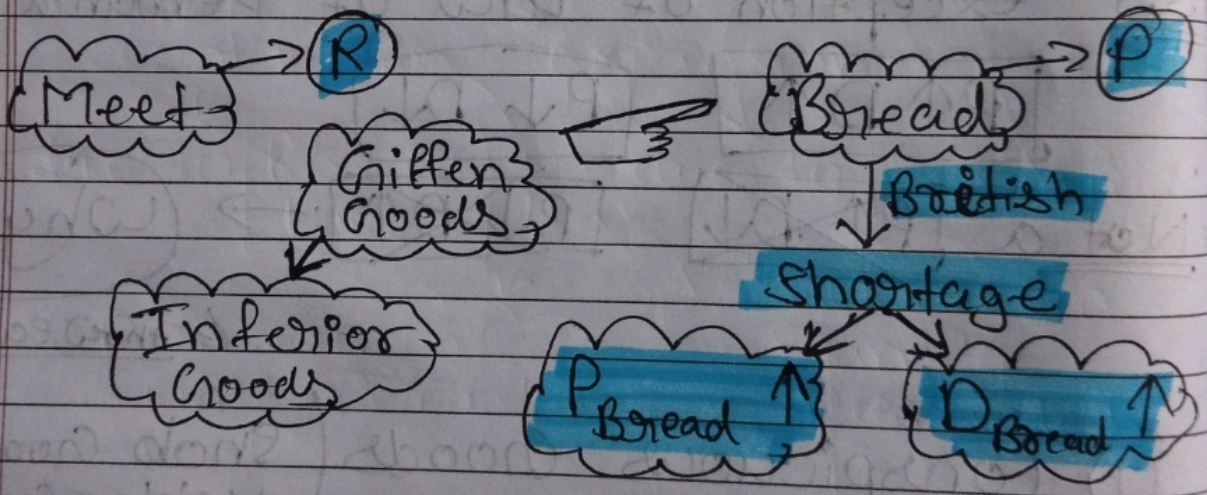 Meet
R
Giffen
Goods
Inferior
Goods
Bread
P
British
Shortage
P Bread ↑
D Bread ↑